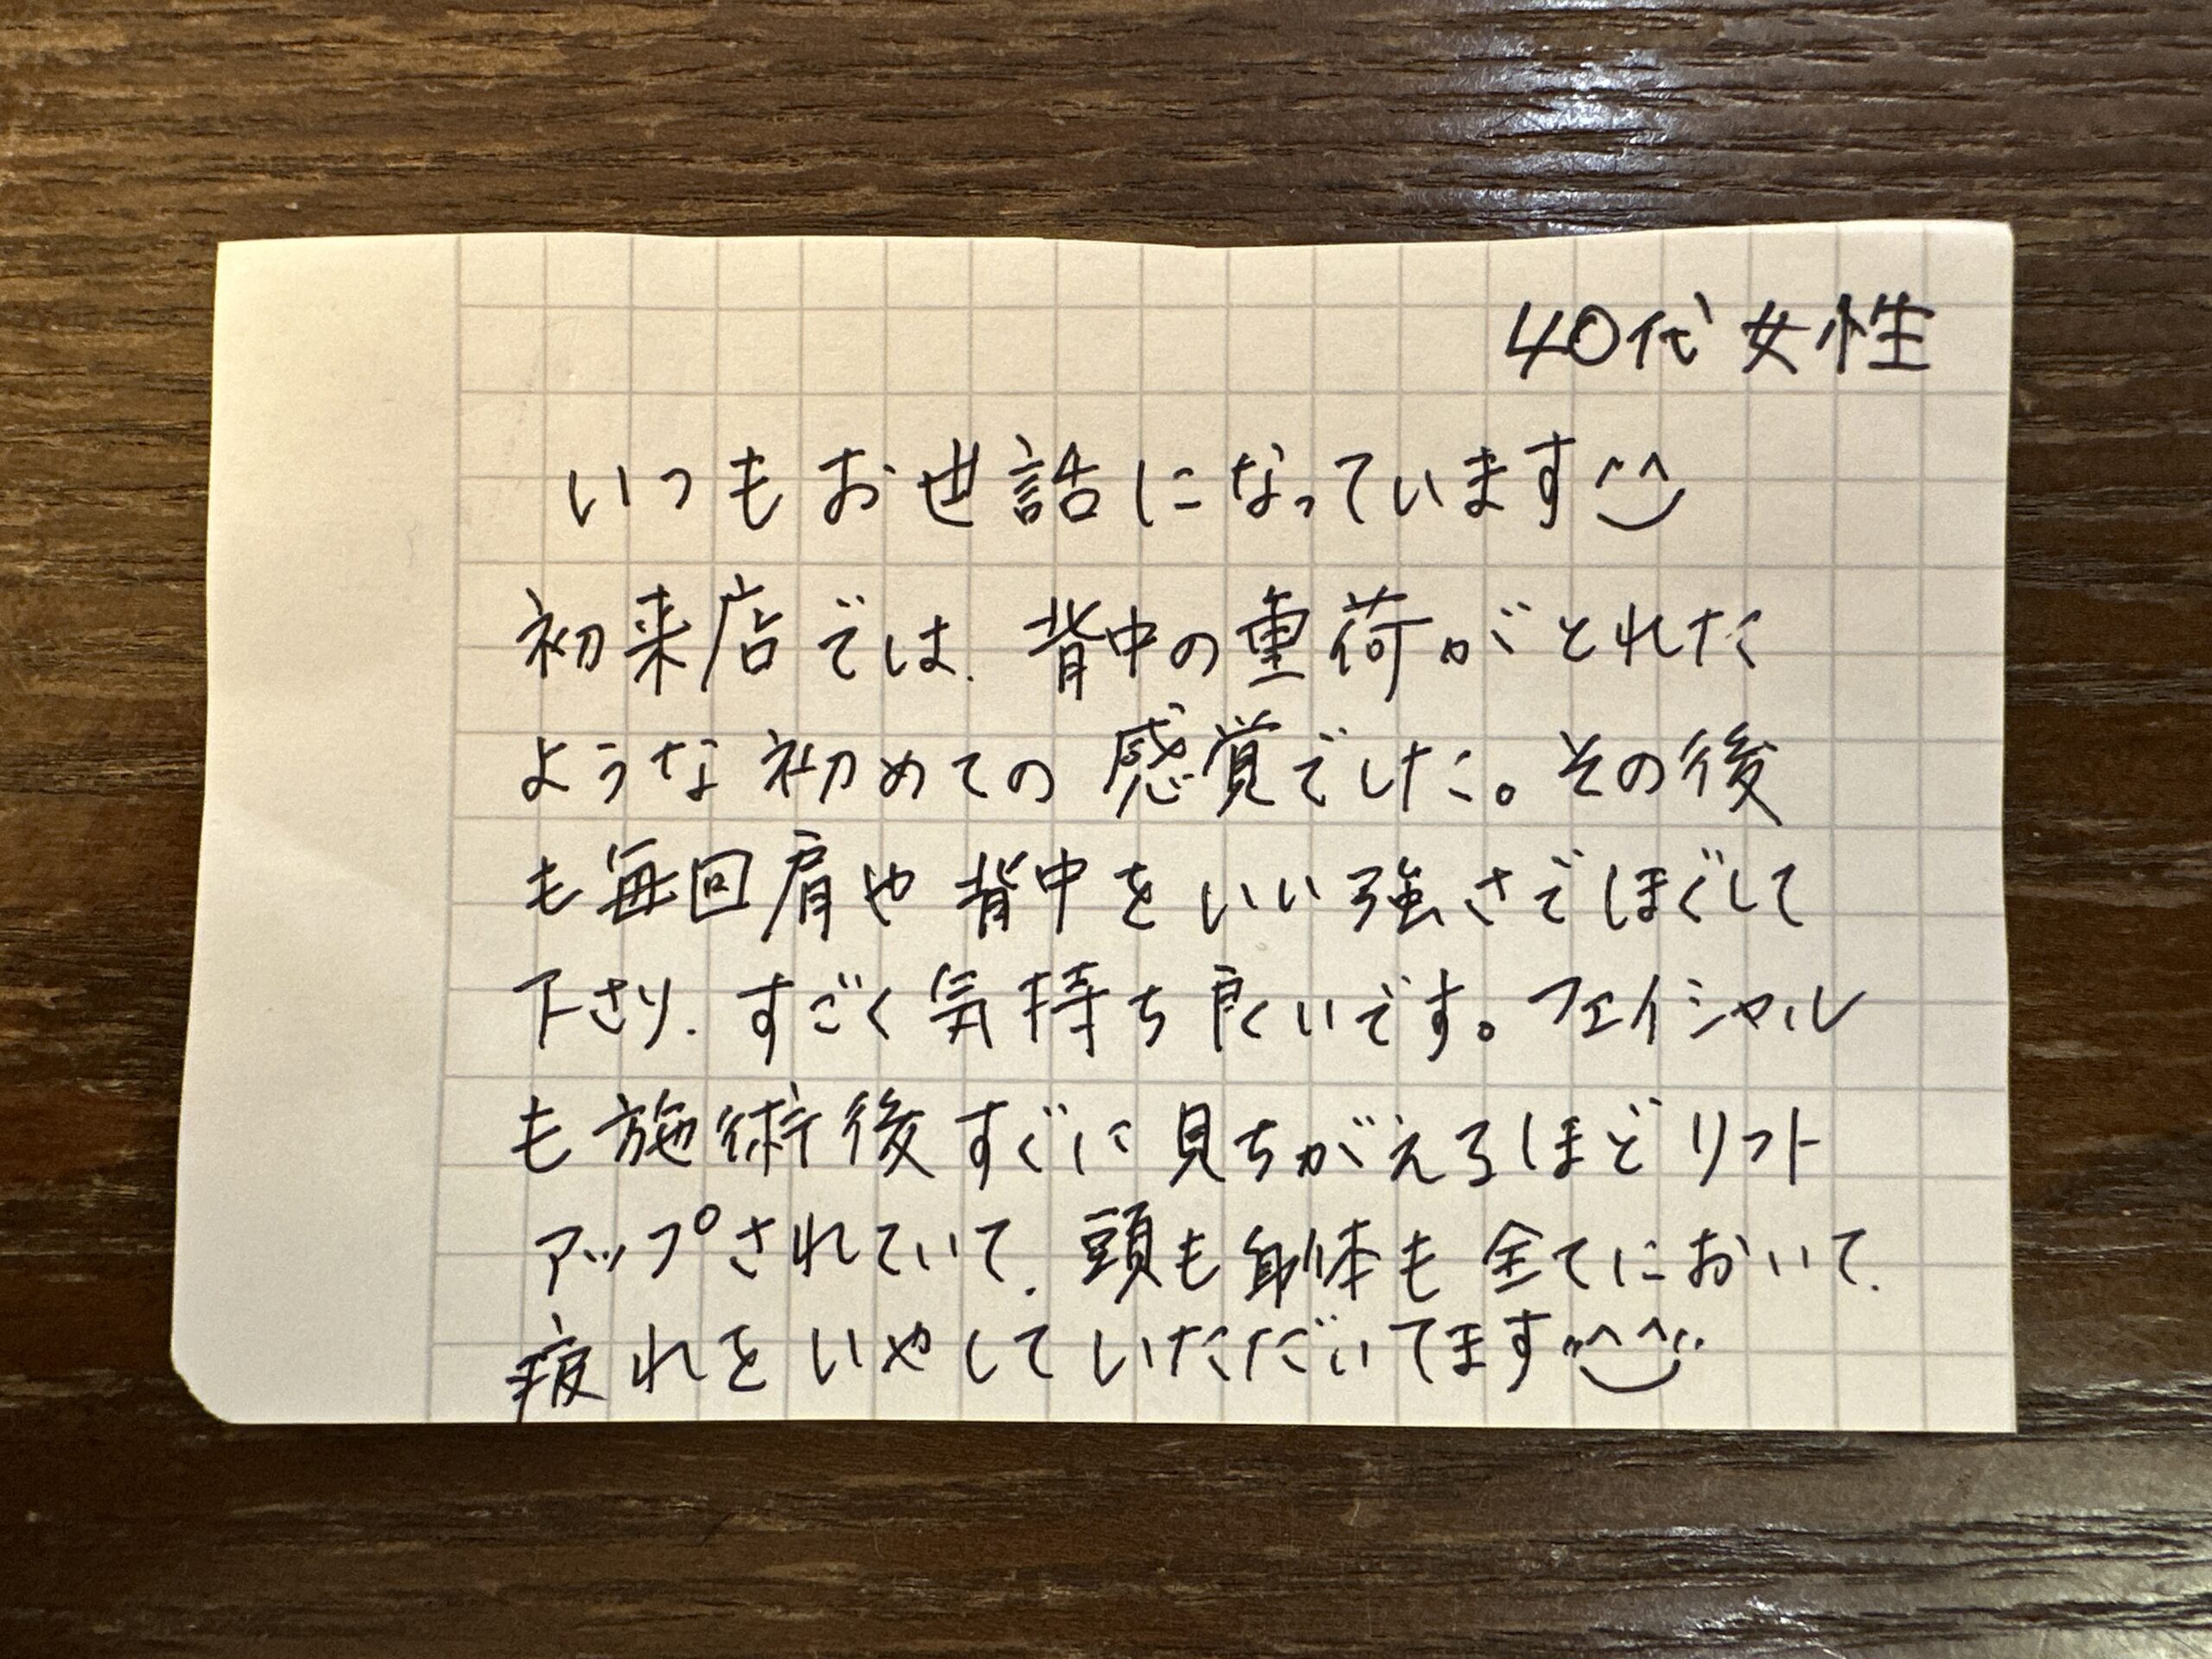 40代 女性
いつもお世話になっています^^
初来店では、背中の重荷がとれた
ような初めての感覚でした。その後
も毎回肩や背中をいい強さでほぐして
下さり、すごく気持ち良いです。フェイシャル
も施術後すぐに見ちがえるほどリフト
アップされていて、頭も身体も全てにおいて、
疲れをいやしていただいてます^^